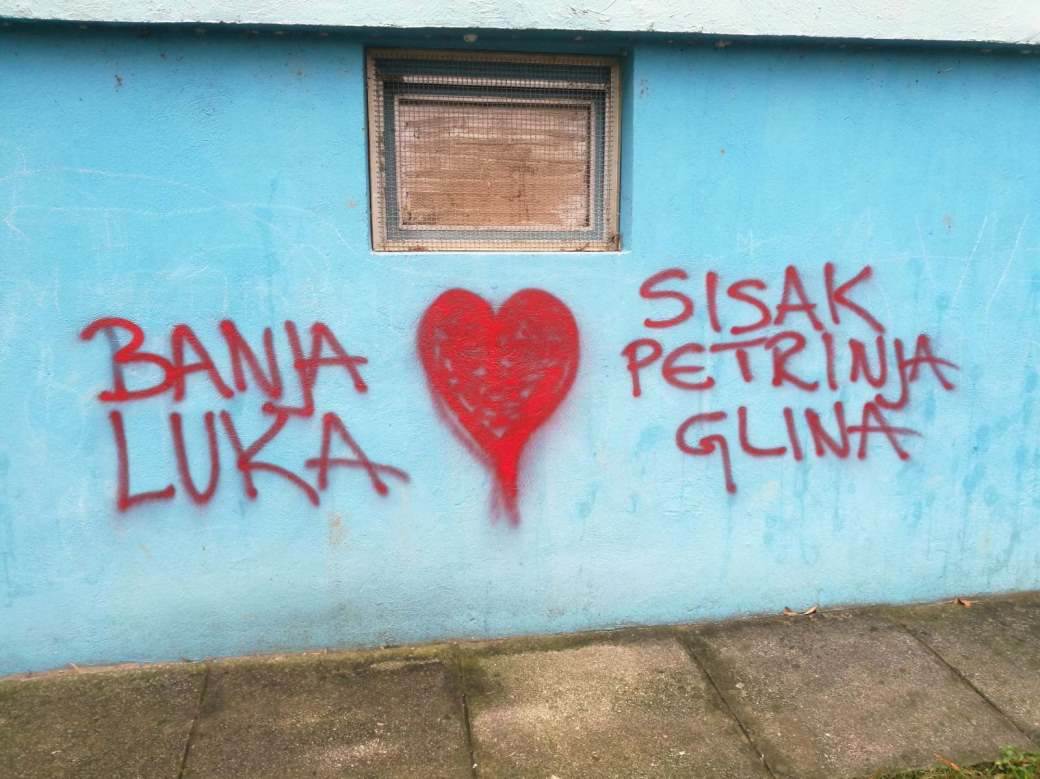 BANJA
LUKA
SISAK
PETRINJA
GLINA